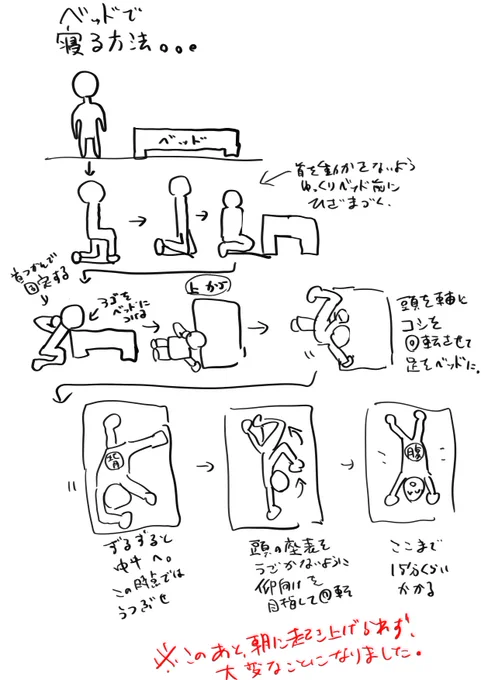 ベッドで
寝る方法。。。
ベッド
首を動かさないよう
ゆっくりベッド前に
ひざまづく。
首つかんで
固定する
うでを
ベッドに
つける
上から
頭を軸に
コシを
回転させて
足をベッドに。
背
腹
ずるずると
中央へ。
この時点では
うつぶせ
頭の座表を
うごかないように
仰向けを
目指して回転
ここまで
15分くらい
かかる
※このあと、朝に起き上げられず、
大変なことになりました。